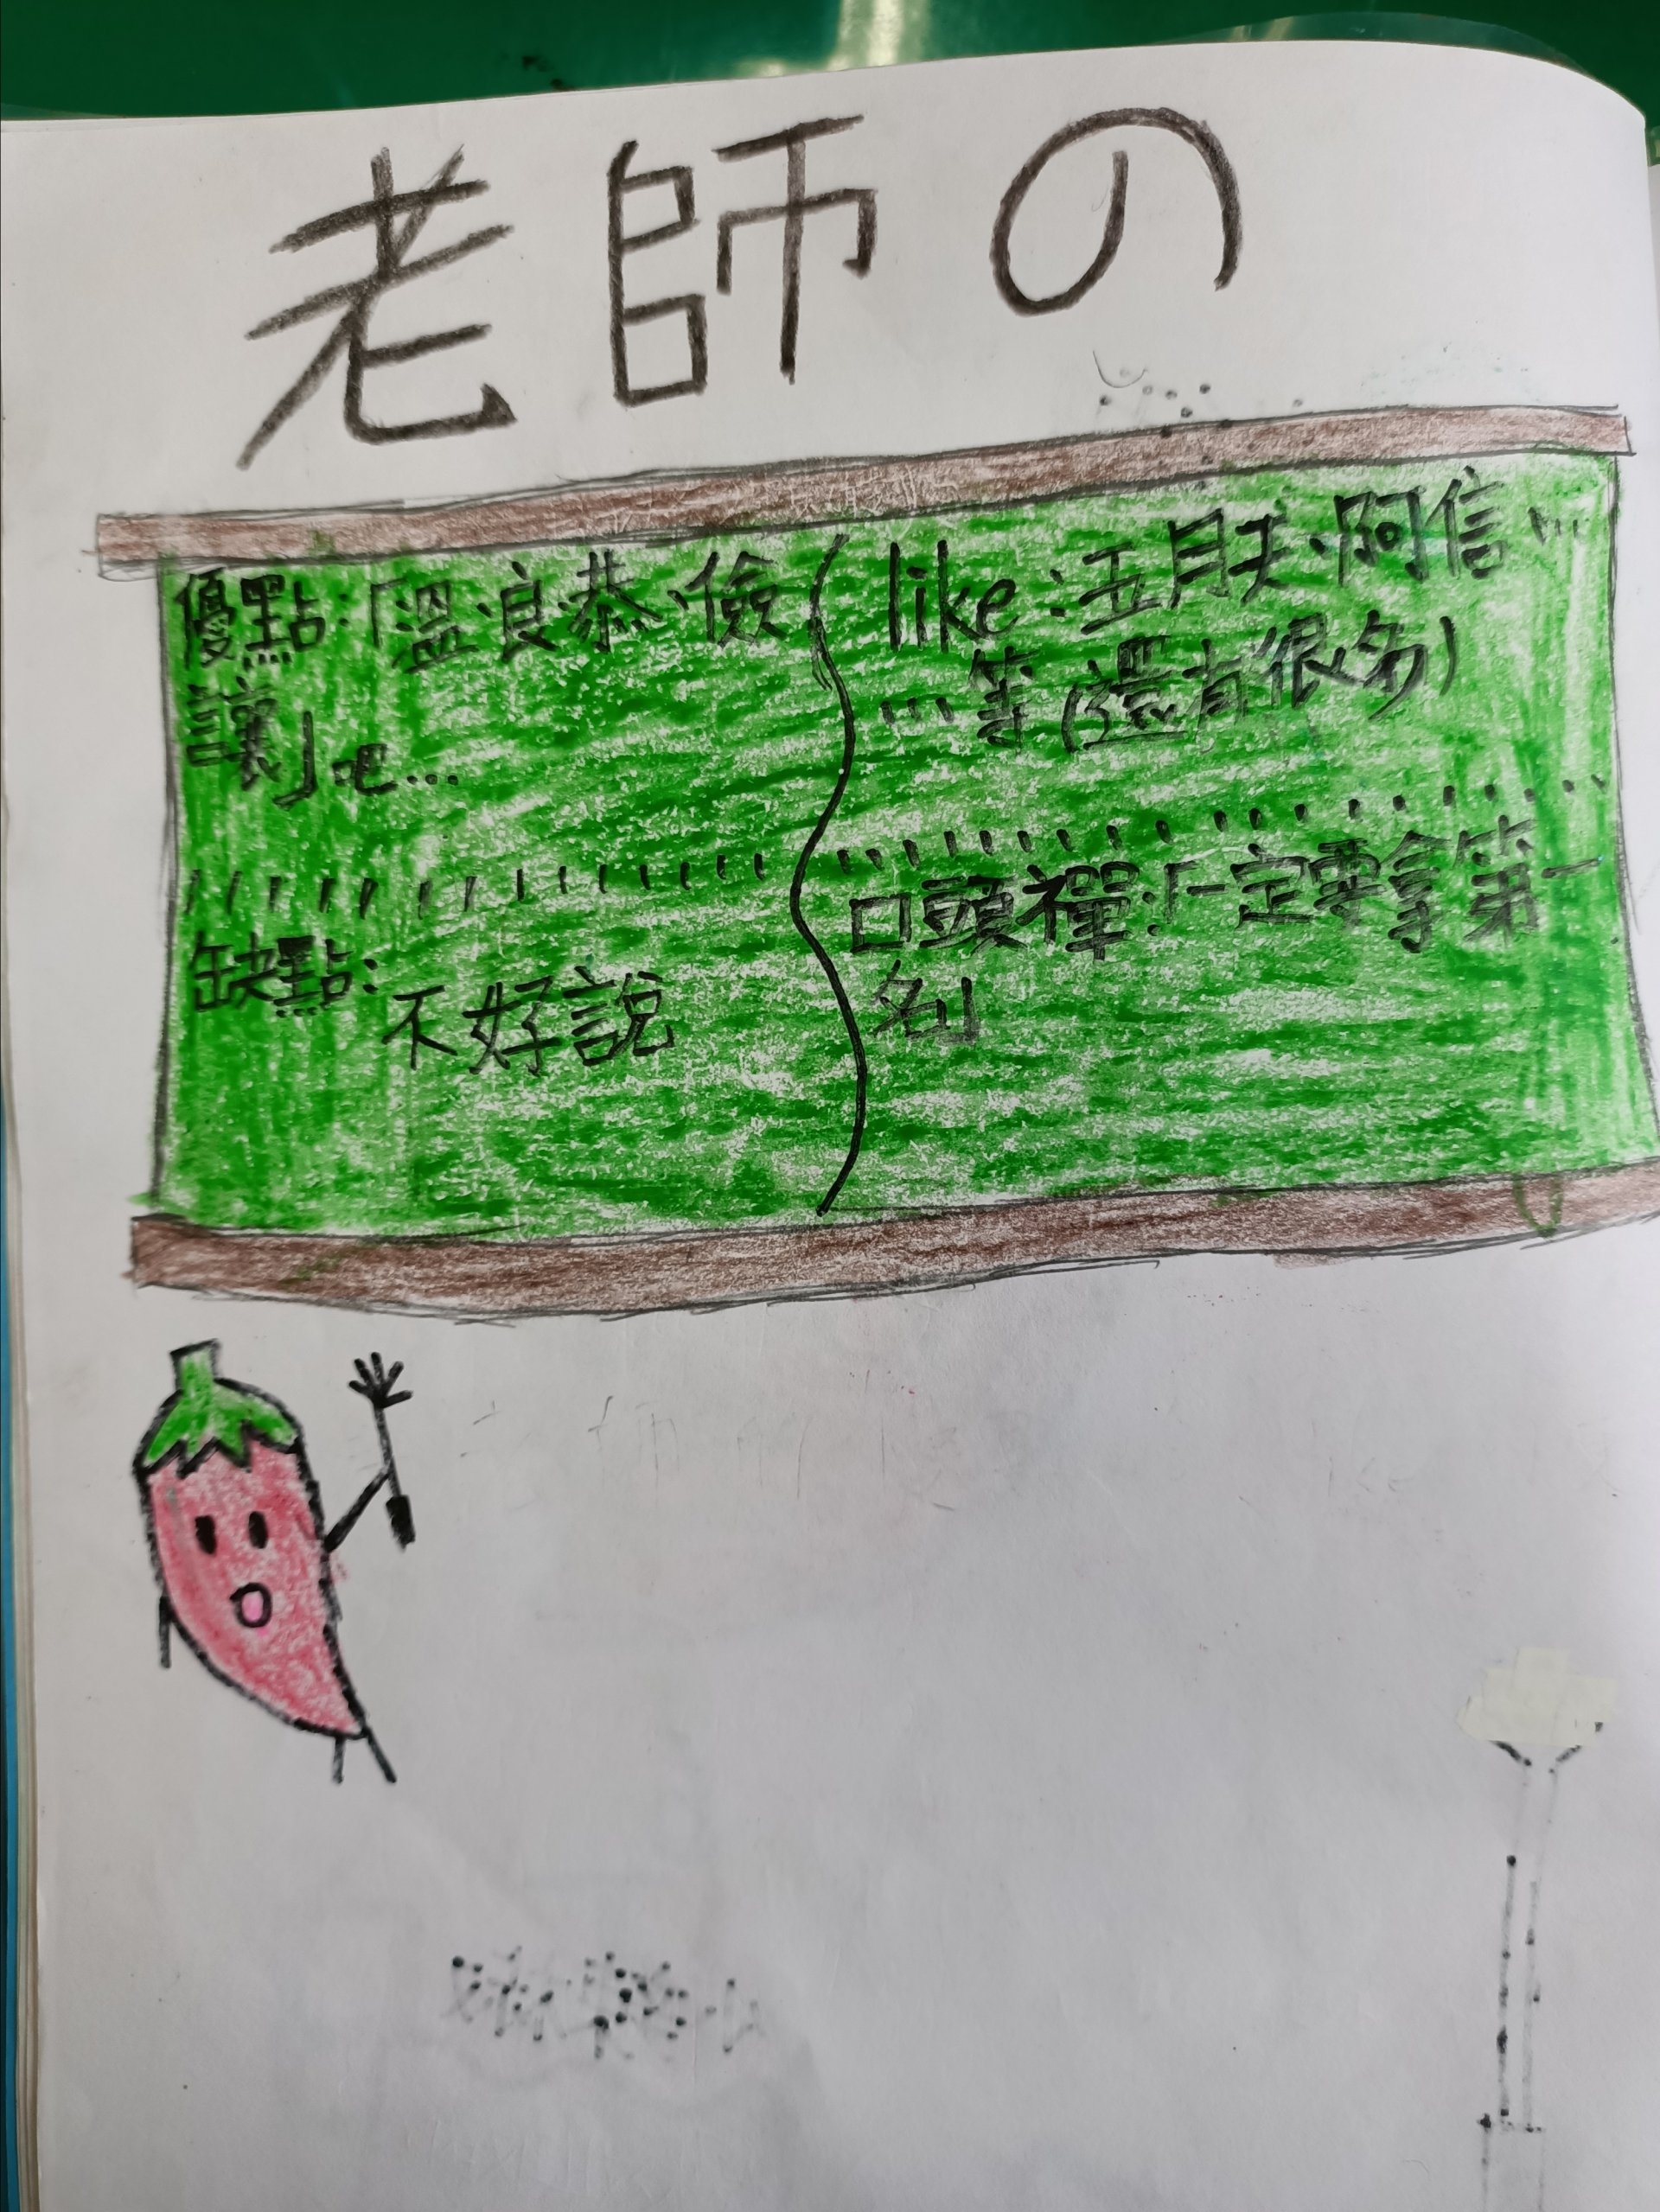 老師の
優點:「溫良恭儉
讓」吧...
缺點:
不好說
like:五月天、阿信...
...等(還有很多)
口頭禪:「一定要拿第一
名」